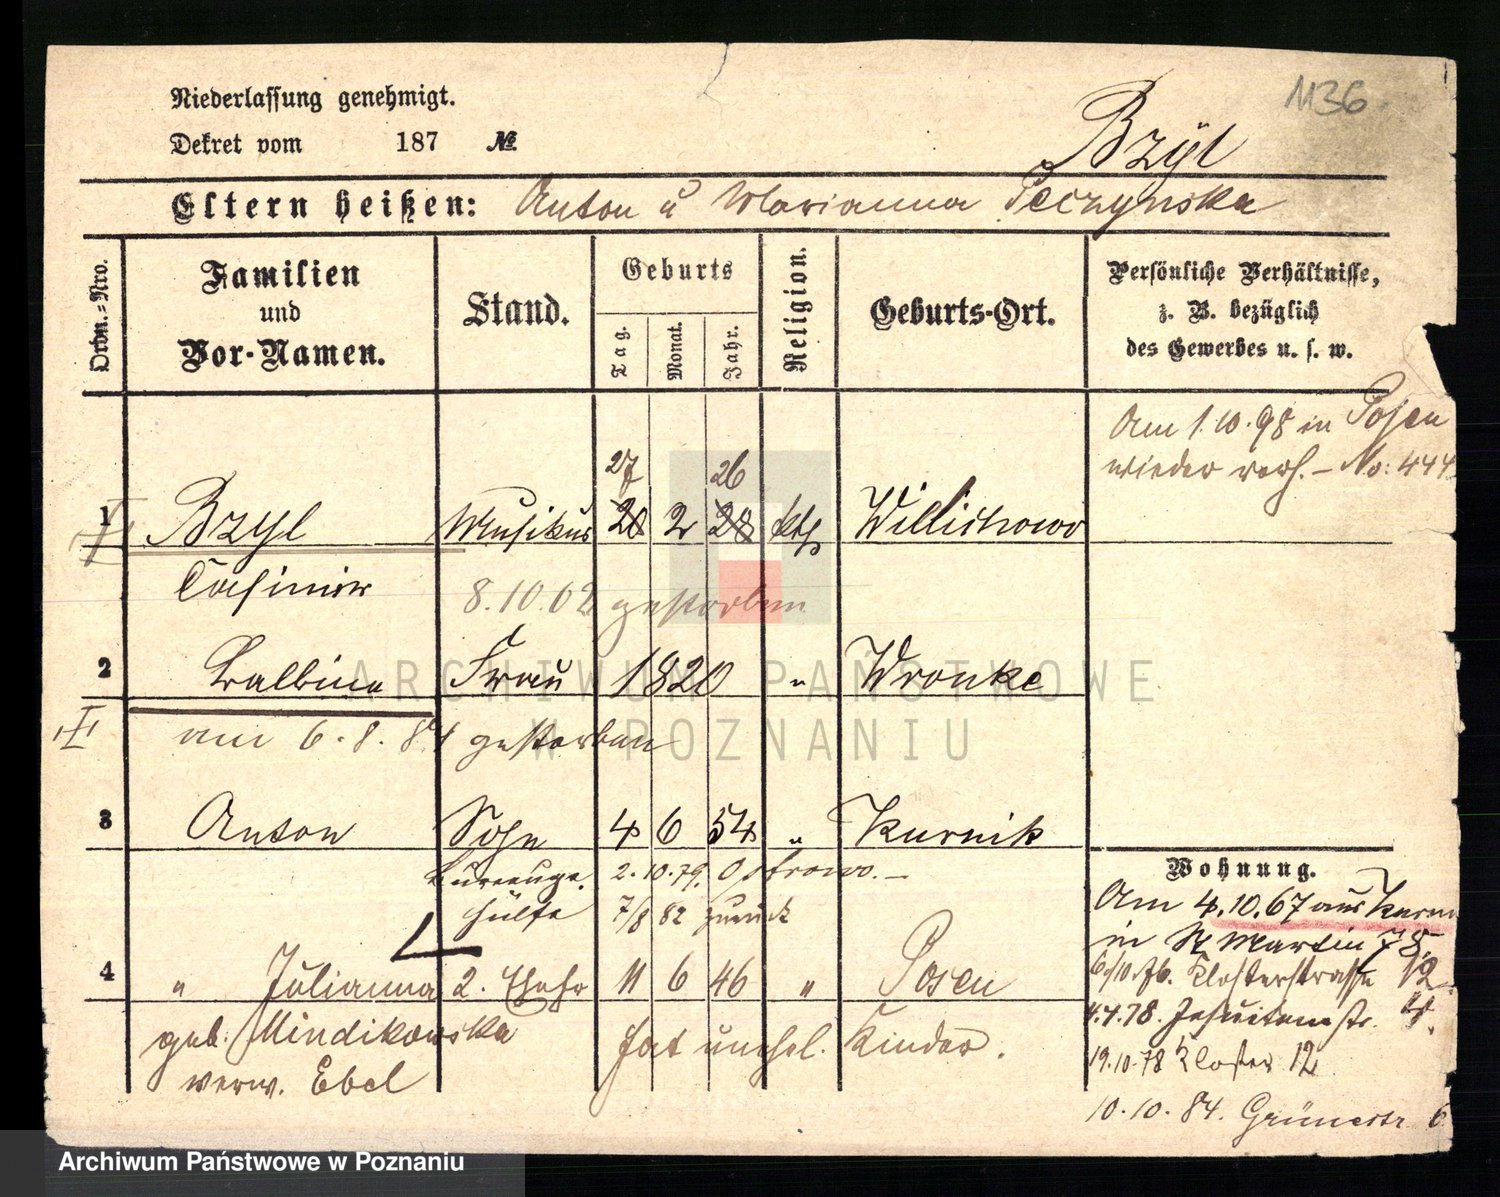 1136
Niederlassung genehmigt.
Dekret vom 187 №
Bzyl
Eltern heißen: Anton u Marianna Peczynska
Ordn.-Nro.
Familien und Vor-Namen.
Stand.
Geburts
Tag. Monat. Jahr.
Religion.
Geburts-Ort.
Persönliche Verhältnisse, z. B. bezüglich des Gewerbes u. s. w.
Am 1.10.98 in Posen
wieder verh. – No: 444
27 26
1 Bzyl Musikus 20 2 28 kth Willichowo
Casimir 8.10.02 gestorben
2 Balbina Frau 1820 " Wronke
am 6.8.84 gestorben
3 Anton Sohn 4 6 54 " Kurnik
Bureauge. 2.10.79. Ostrowo. –
hülfe 7/8 82 zurück
4 " Julianna 2. Ehefr 11 6 46 " Posen
geb. Mindikowska hat unehel. Kinder.
verw. Ebel
Wohnung.
Am 4.10.67 aus Kurn
in St Martin 78
6/10.76. Klosterstrasse 12.
4.4.78. Jesuitenstr. 4.
19.10.78 Kloster 12
10.10.84. Grünestr 6
ARCHIWUM PAŃSTWOWE
W POZNANIU
Archiwum Państwowe w Poznaniu